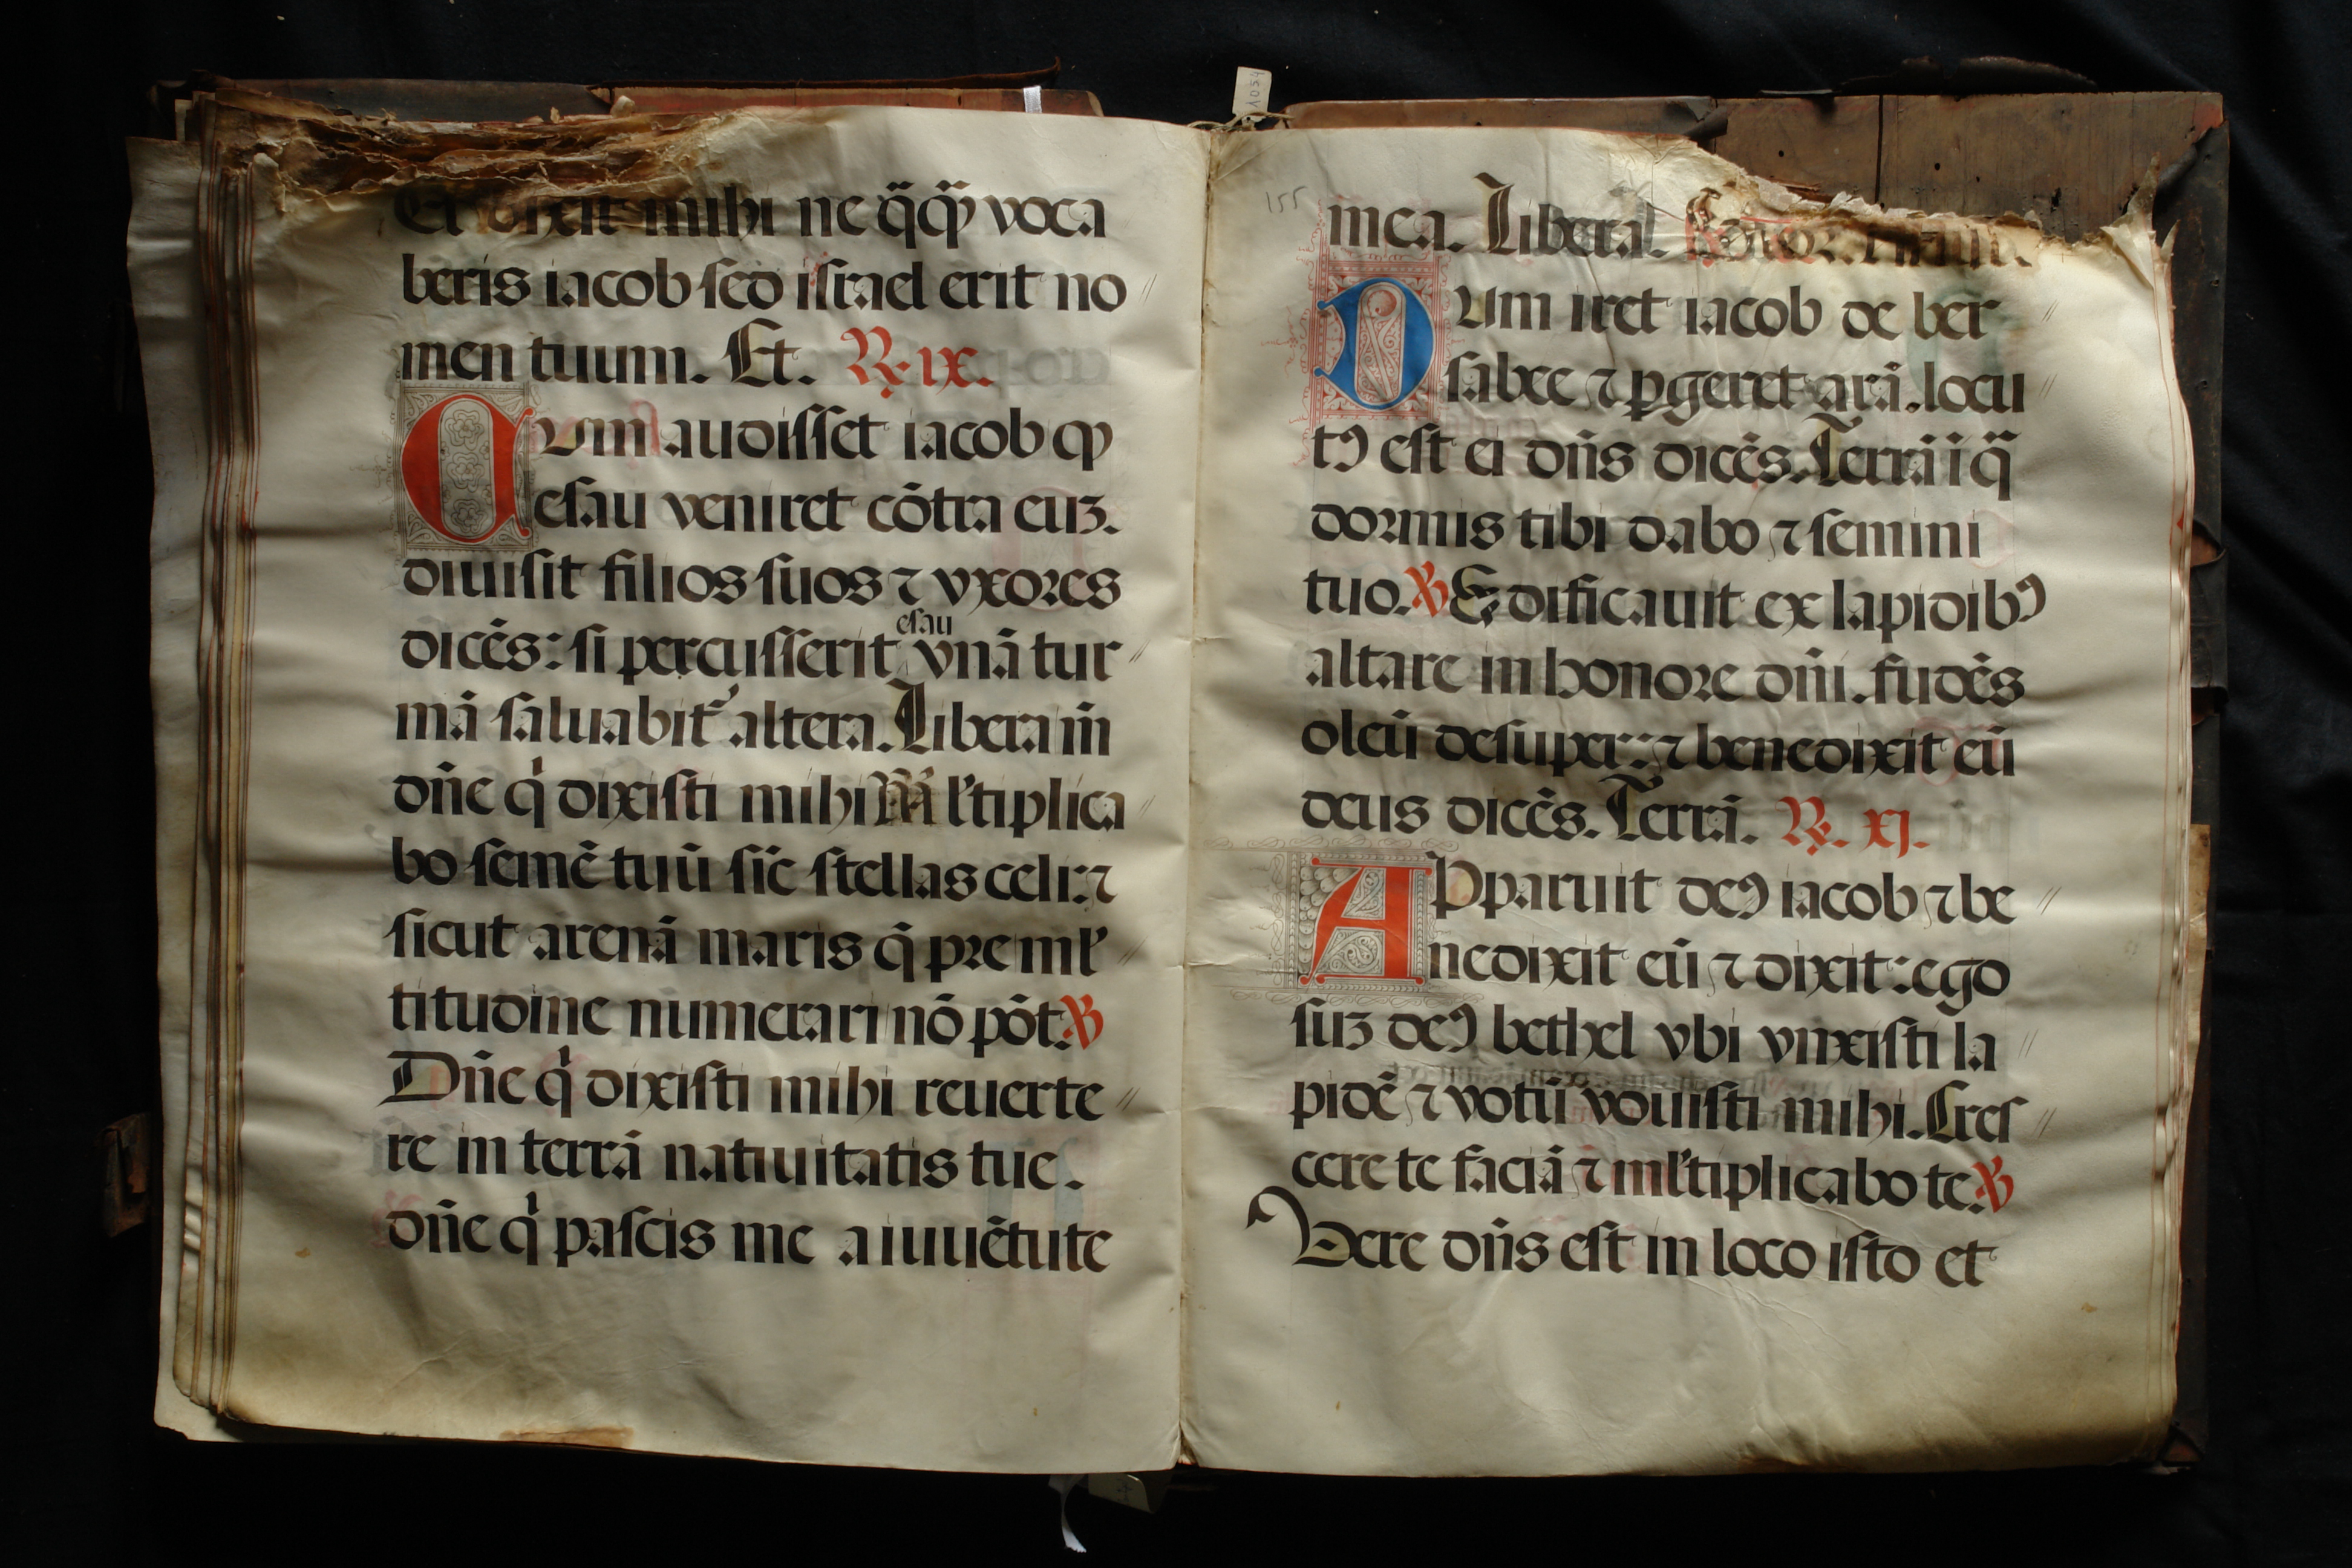 Et dixit mihi ne q̃qͣꝫ voca
beris iacob ſed iſrael erit no
men tuum. Et. ℟. ix.
Cum audiſſet iacob ꝙ
eſau veniret cõtra euꝫ.
diuiſit filios ſuos ⁊ vxores
eſau
dicẽs: ſi percuſſerit vnã tur
mã ſaluabit᷑ altera. Libera m̃
dñe qͥ dixiſti mihi Ml'tiplica
bo ſemẽ tuũ ſic̃ ſtellas celi: ⁊
ſicut arenã maris q̃ pre ml'
titudine numerari nõ põt. ℣
Dñe qͥ dixiſti mihi reuerte
re in terrã natiuitatis tue.
dñe qͥ paſcis me a iuuẽtute
155
mea. Libera.
Dum iret iacob de ber
ſabee ⁊ ꝑgeret arã. locu
tꝰ eſt ei dñs dicẽs. Terrã ĩ q̃
dormis tibi dabo ⁊ ſemini
tuo. ℣ Edificauit ex lapidibꝰ
altare in honore dñi. fudẽs
oleũ deſuper: ⁊ benedixit eũ
deus dicẽs. Terrã. ℟. xj.
Apparuit deꝰ iacob ⁊ be
nedixit eũ ⁊ dixit: ego
ſuꝫ deꝰ bethel vbi vnxiſti la
pidẽ ⁊ votũ vouiſti mihi. Creſ
cere te faciã ⁊ ml'tiplicabo te. ℣
Vere dñs eſt in loco iſto et